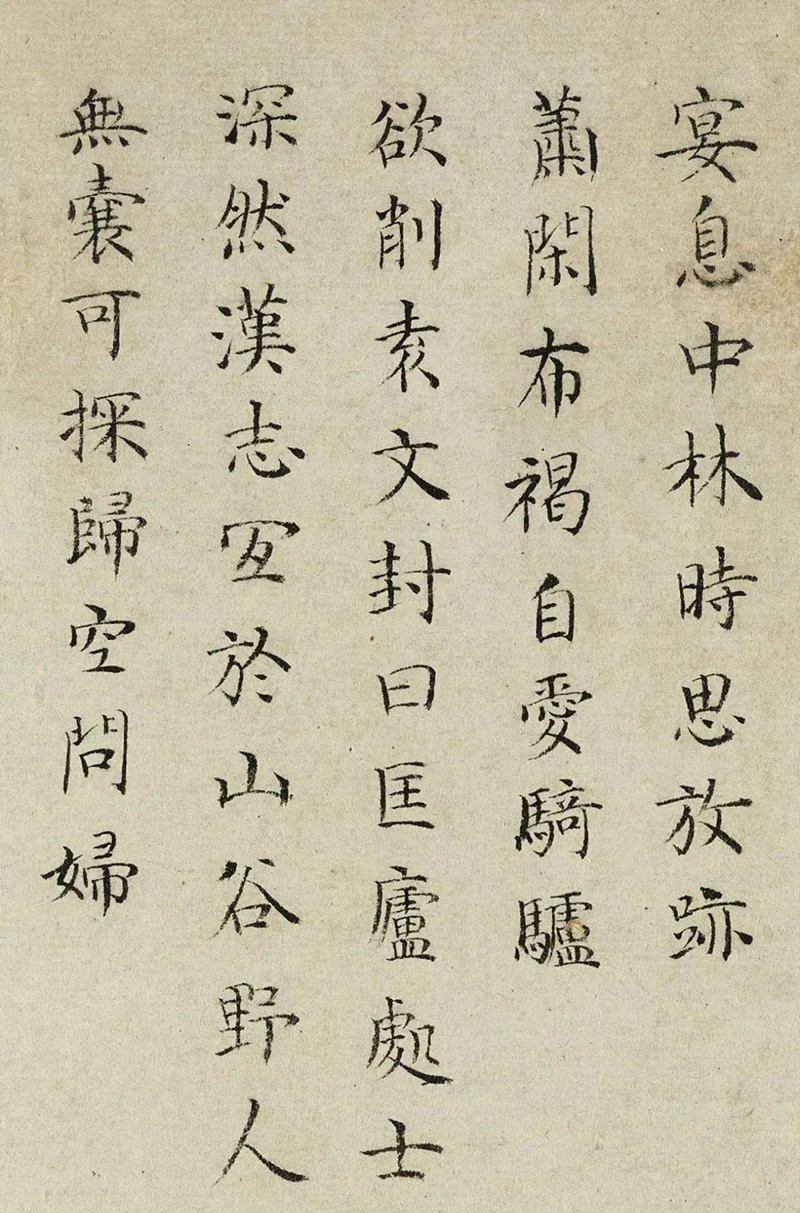 宴息中林時思放跡
蕭閑布褐自愛騎驢
欲削袁文封曰匡廬處士
深然漢志宜於山谷野人
無囊可探歸空問婦